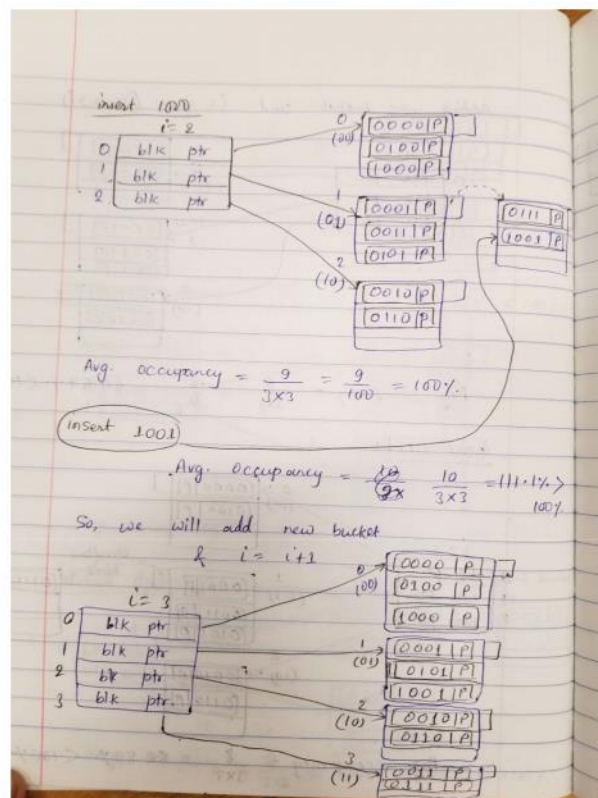 insert 1000
i= 2
0 blk ptr
1 blk ptr
2 blk ptr
0
(00)
0000 P
0100 P
1000 P
1
(01)
0001 P
0011 P
0101 P
0111 P
1001 P
2
(10)
0010 P
0110 P
Avg. occupancy = 9 / 3x3 = 9 / 100 = 100%.
insert 1001
Avg. occupancy = 10 / 3x3 = 111.1% >
100%
So, we will add new bucket
& i= i+1
i= 3
0 blk ptr
1 blk ptr
2 blk ptr
3 blk ptr
0
(00)
0000 P
0100 P
1000 P
1
(01)
0001 P
0101 P
1001 P
2
(10)
0010 P
0110 P
3
(11)
0011 P
0111 P